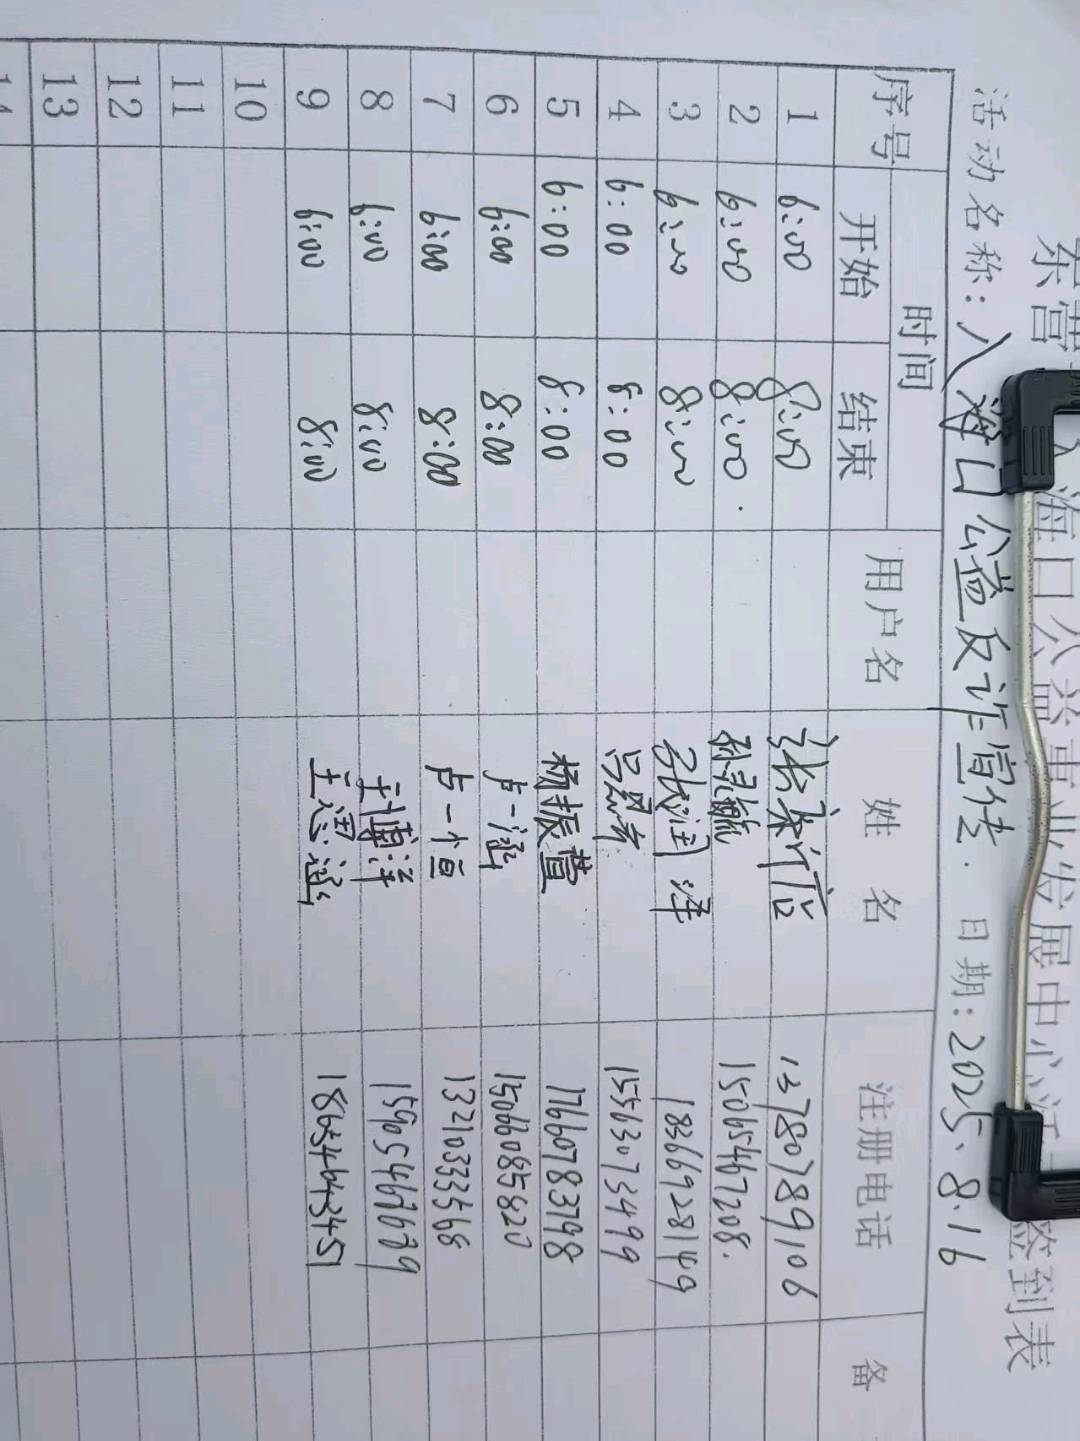 东营 入海口公益事业发展中心活 签到表
活动名称：入海口公益反诈宣传． 日期：2025、8.16
序号 时间 用户名 姓 名 注册电话 备
开始 结束
1 6:00 8:00 13780789106
2 6:00 8:00 15065467208.
3 6:00 8:00 张润泽 18366928149
4 6:00 8:00 15563073499
5 6:00 8:00 杨振萱 17660783798
6 6:00 8:00 卢一涵 15066085820
7 6:00 8:00 卢一恒 13210333568
8 6:00 8:00 王博洋 15905466639
9 6:00 8:00 王思涵
10
11
12
13
14